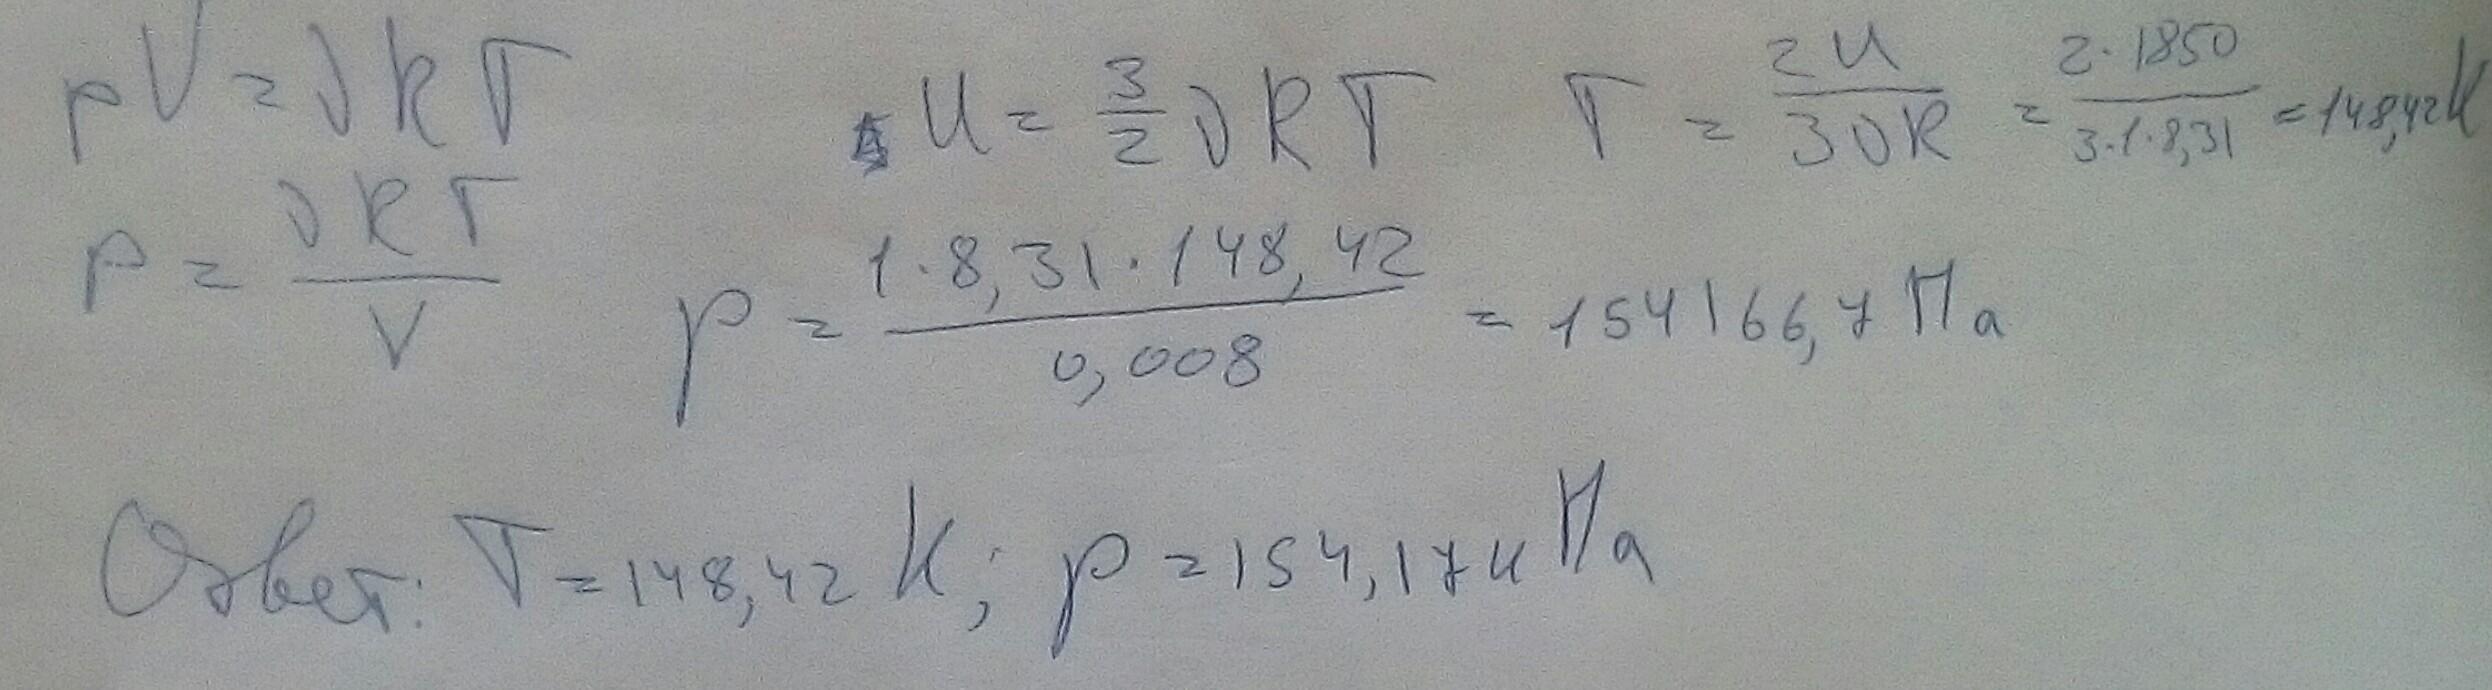 pV = νRT U = 3/2 νRT T = 2U/3νR = 2·1850/3·1·8,31 = 148,42K
p = νRT/V p = 1·8,31·148,42/0,008 = 154166,7 Па
Ответ: T = 148,42 K; p = 154,17 кПа